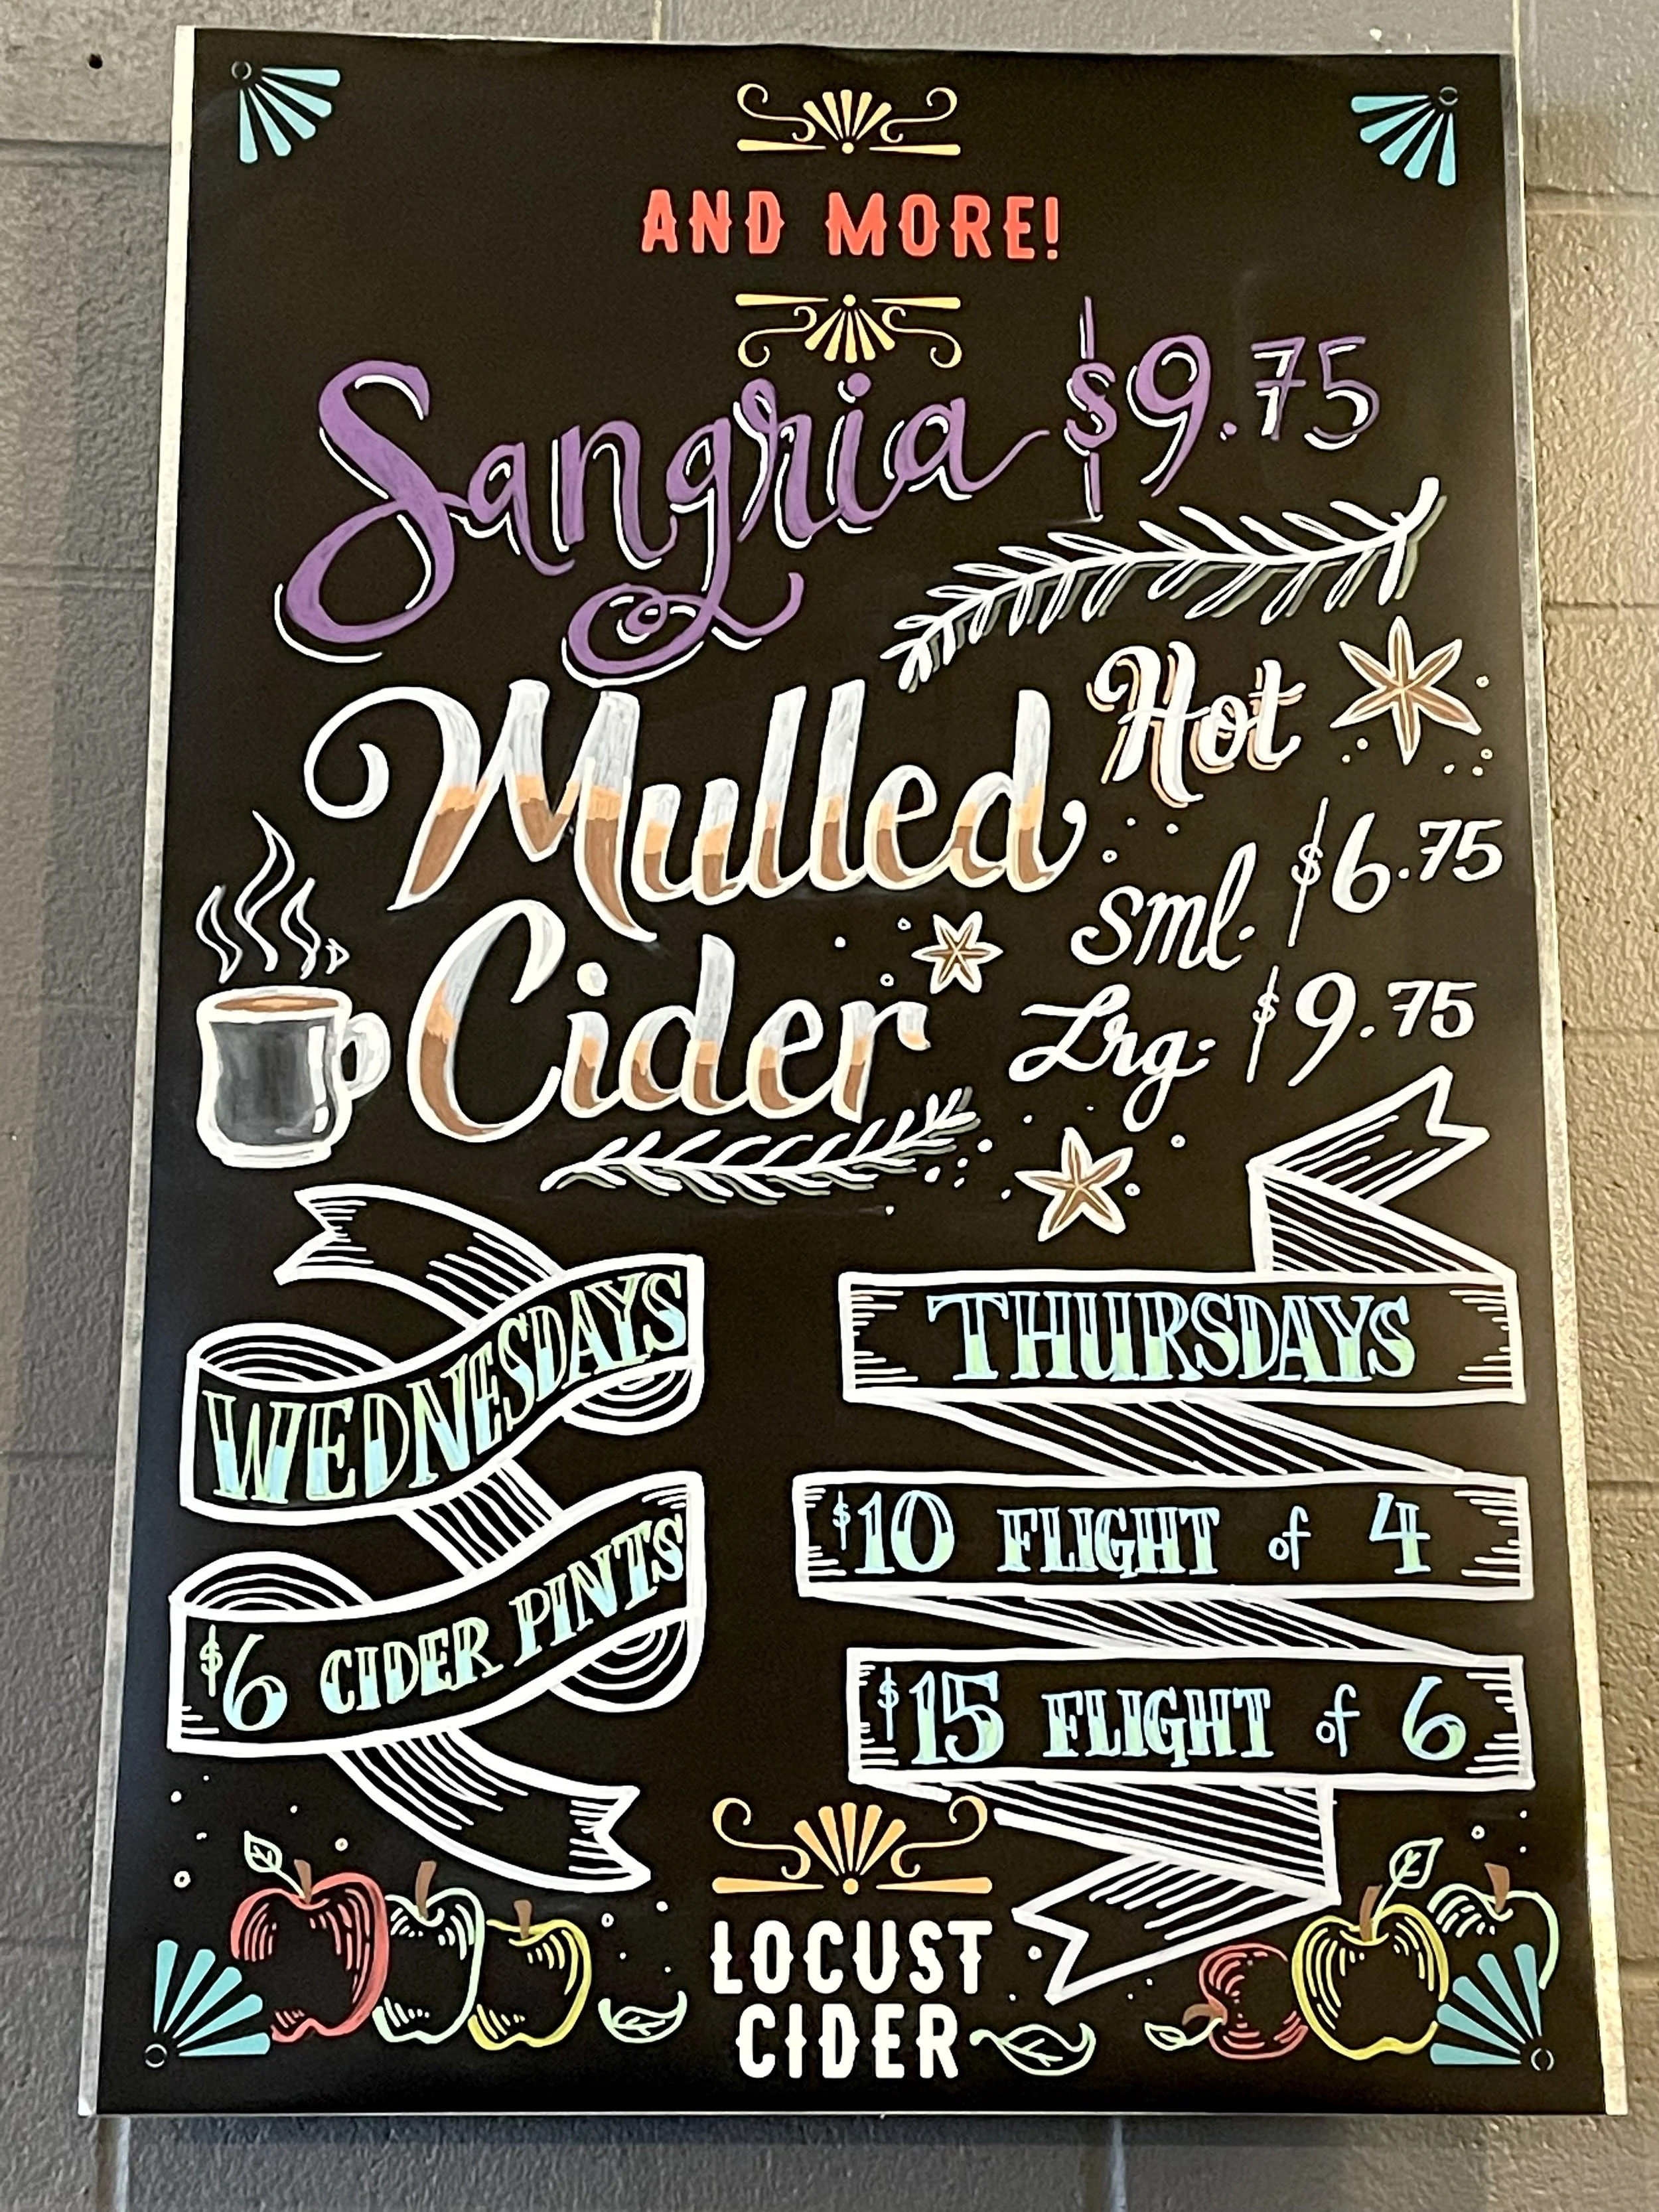 AND MORE!
Sangria $9.75
Hot
Mulled
Cider
sml. $6.75
Lrg. $9.75
WEDNESDAYS
$6 CIDER PINTS
THURSDAYS
$10 FLIGHT of 4
$15 FLIGHT of 6
LOCUST
CIDER